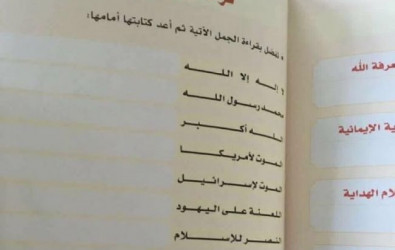 • تفضل بقراءة الجمل الآتية ثم أعد كتابتها أمامها:
لا إله إلا الله
محمد رسول الله
الله أكبر
الموت لأمريكا
الموت لإسرائيل
اللعنة على اليهود
النصر للإسلام
رفة الله
ية الإيمانية
لام الهداية